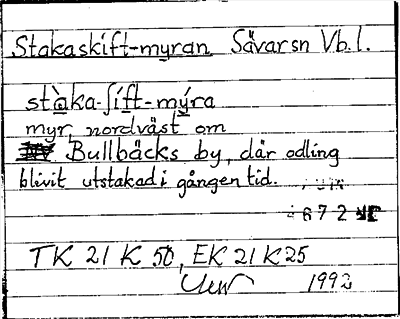 Stakaskift-myran Sävar sn Vb.l.
stà̱ka-ʃi̱ft-mý̱ra
myr, nordväst om
Bullbäcks by, där odling
blivit utstakad i gången tid.
672
TK 21 K 50, EK 21 K 25
1992